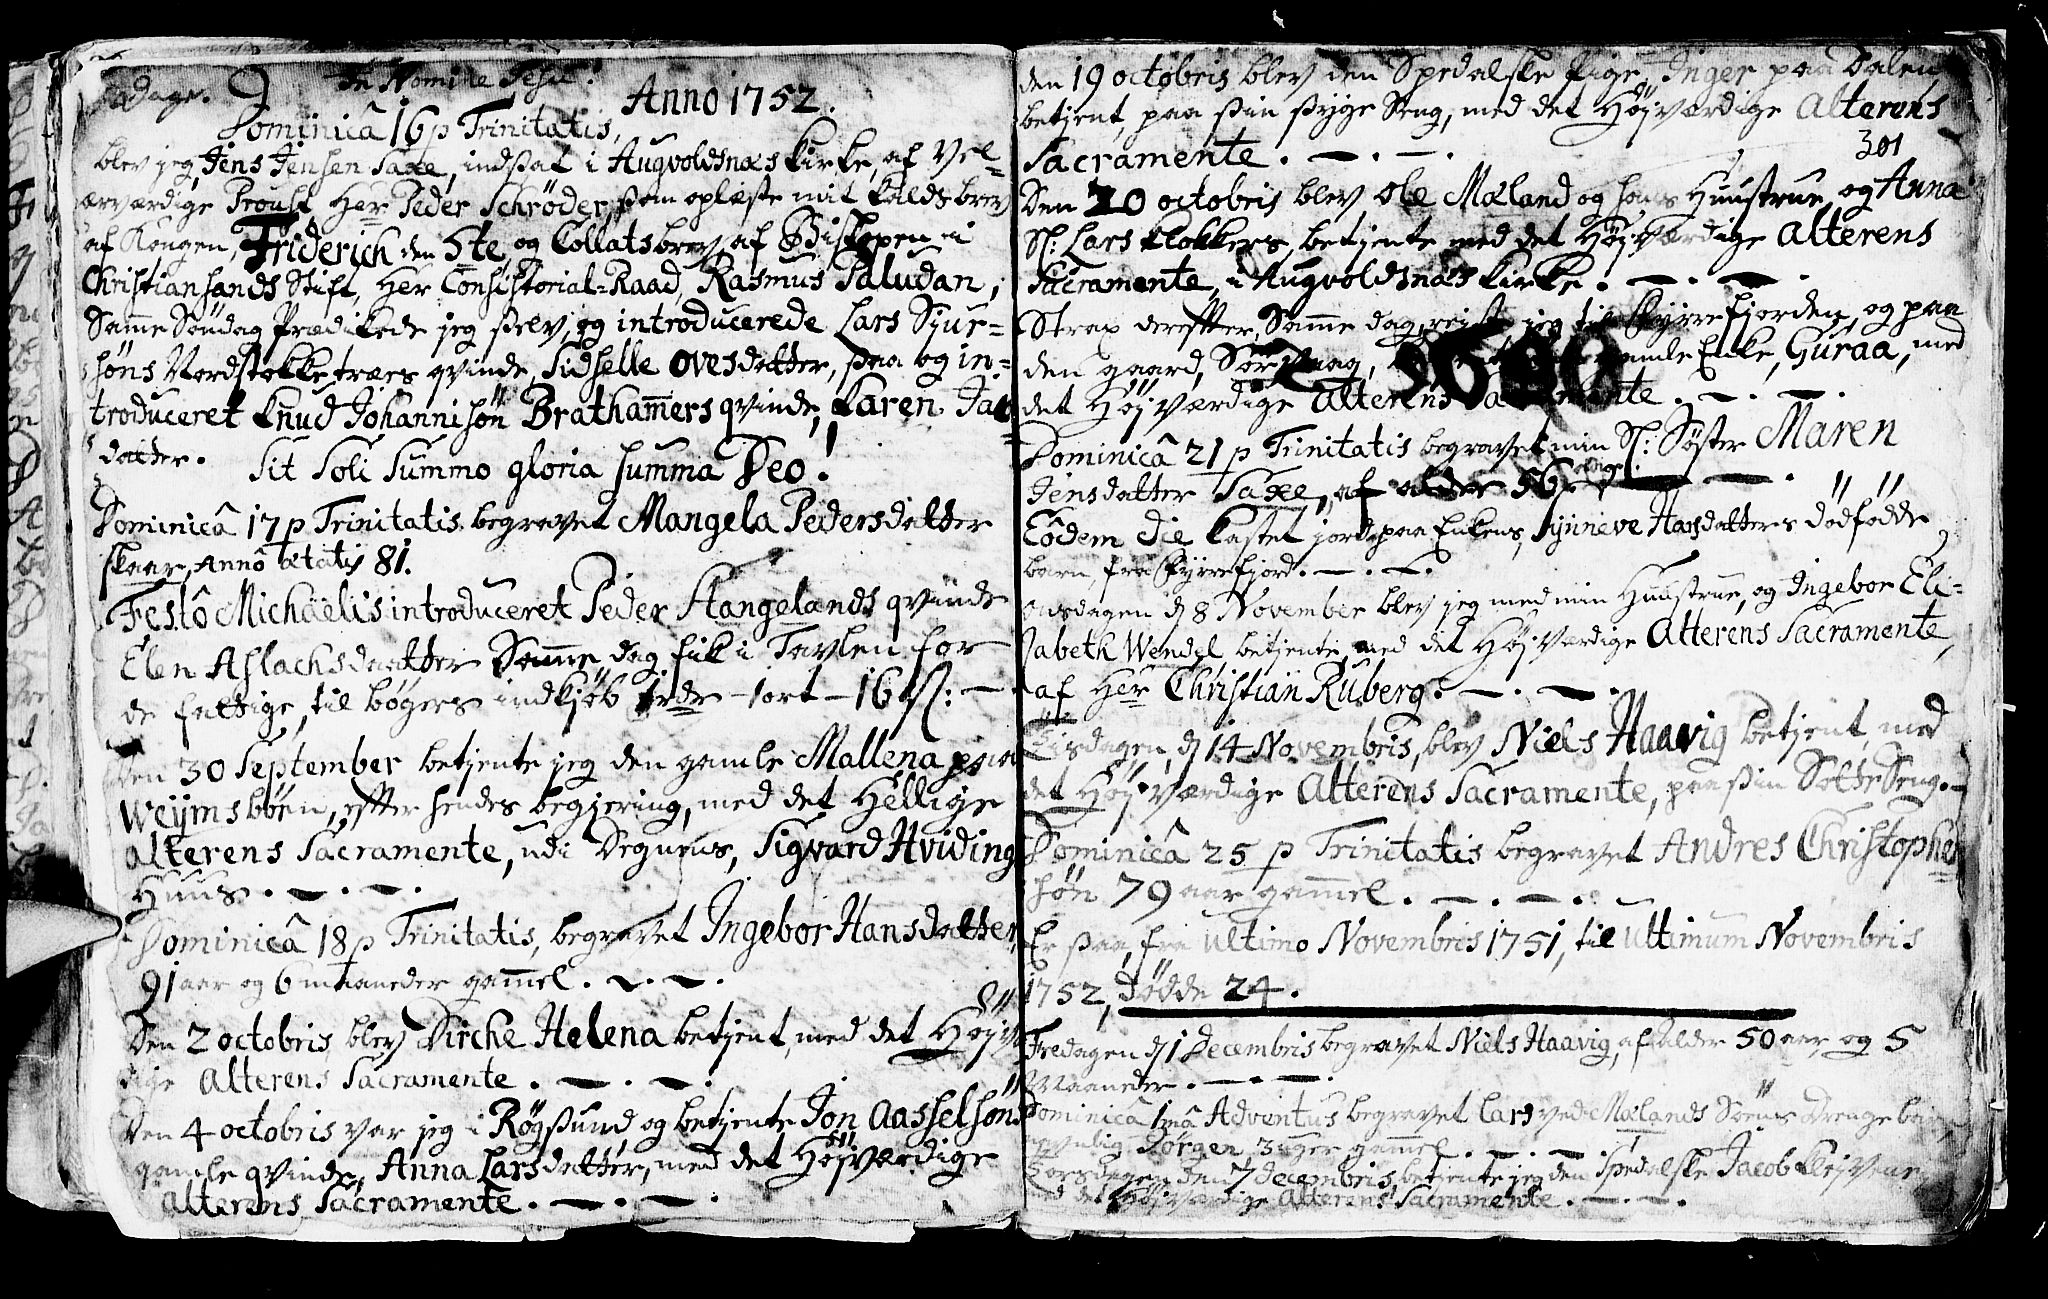 In Nomine Jesu!
Anno 1752.
Dominicâ 16 p Trinitatis,
blev jeg, Jens Jensen Saxe, indsat i Augvoldsnæs Kirke, af Vel-
ærværdige Proust Her Peder Schrøder, som oplæste mit Kalds brev
af Kongen, Friderich den 5te, og Collats brev af Biskopen i
Christiansands Stift, Her Consistorial-Raad, Rasmus Paludan,
Samme Søndag Prædikede jeg selv, og introducerede Lars Sjur-
søns Nordstokketræes qvinde, Sidselle Ovesdatter, saa og in-
troduceret Knud Johannisøn Brathammers qvinde, Karen Jac
datter.
Sit Soli Summo gloria summa Deo!
Dominicâ 17 p Trinitatis begravet Mangela Pedersdatter
Skaar, Annô ætatis 81.
Festô Michaëlis introduceret Peder Stangelands qvinde
Elen Aslachsdaatter Samme dag fik i Tavlen for
de fattige, til bøgers indkjøb 1rdr - 1ort - 16 sk: -
Den 30 September betjente jeg den gamle Mallena paa
Weijmsbøen, efter hendes begjering, med det Hellige
alterens Sacramente, udi Degnens, Sigvard Hvidings
Huus. - . - .
Dominicâ 18 p Trinitatis, begravet Ingebor Hansdatter,
91 aar og 6 maaneder gammel. - . - .
Den 2 octobris blev Dirche Helena betjent, med det Højvær
dige Alterens Sacramente. - . - .
Den 4 octobris var jeg i Røgsund, og betjente Jon Aasselsøns
gamle qvinde, Anna Larsdatter, med det Højværdige
Alterens Sacramente. - . - .
den 19 octobris blev den Spedalske pige, Inger paa Dalen,
betjent, paa sin syge Seng, med det Højværdige Alterens
Sacramente. - . - .
301
Den 20 octobris blev Ole Mæland og hans Huustrue, og Anna
Sl: Lars Klokkers, betjente med det Højværdige alterens
Sacramente, i Augvoldsnæs Kirke. - . - .
Strax derefter, Samme dag, reiste jeg til Skyrrefjorden, og paa
den gaard, Sørvaag, gamle Enke, Guraa, med
det Højværdige Alterens Sacramente. - . - .
Dominicâ 21 p Trinitatis begravet min Sl: Søster Maren
Jensdatter Saxe, af alder 56
Eôdem die kastet jord paa Enkens, Synneve Hansdatters dødfødde
barn, fra Skyrrefjord. - . - .
Onsdagen d 8 November blev jeg med min Huustrue, og Ingebor Eli-
sabeth Wendel, betjente, med det Højværdige Alterens Sacramente,
af Her Christian Ruberg. - . - .
Tisdagen, d 14 Novembris, blev Niels Haavig betjent, med
det Højværdige Alterens Sacramente, paa sin Sotte Seng. -
Dominicâ 25 p Trinitatis begravet Andres Christopher
søn 79 aar gammel. - . - .
Er saa, fra ultimo Novembris 1751, til ultimum Novembris
1752, dødde 24.
Fredagen d 1 Decembris begravet Niels Haavig, af Alder 50 aar og 5
Maaneder. - . - .
Dominicâ 1mâ Adventus begravet Lars ved Mælands Søens Drengebarn,
navnlig Jørgen, 3 uger gammel. - . - .
Torsdagen den 7 decembris, betjente jeg den Spedalske Jacob Klejvene
med det Højværdige Alterens Sacramente. - . - .